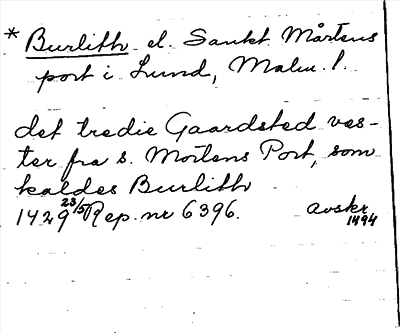 * Burlith el. Sankt Mårtens
port i Lund, Malm. l.
det tredie Gaardsted ves-
ter fra s. Mortens Port, som
kaldes Burlith
1429 23/5 Rep. nr 6396. avskr.
1494